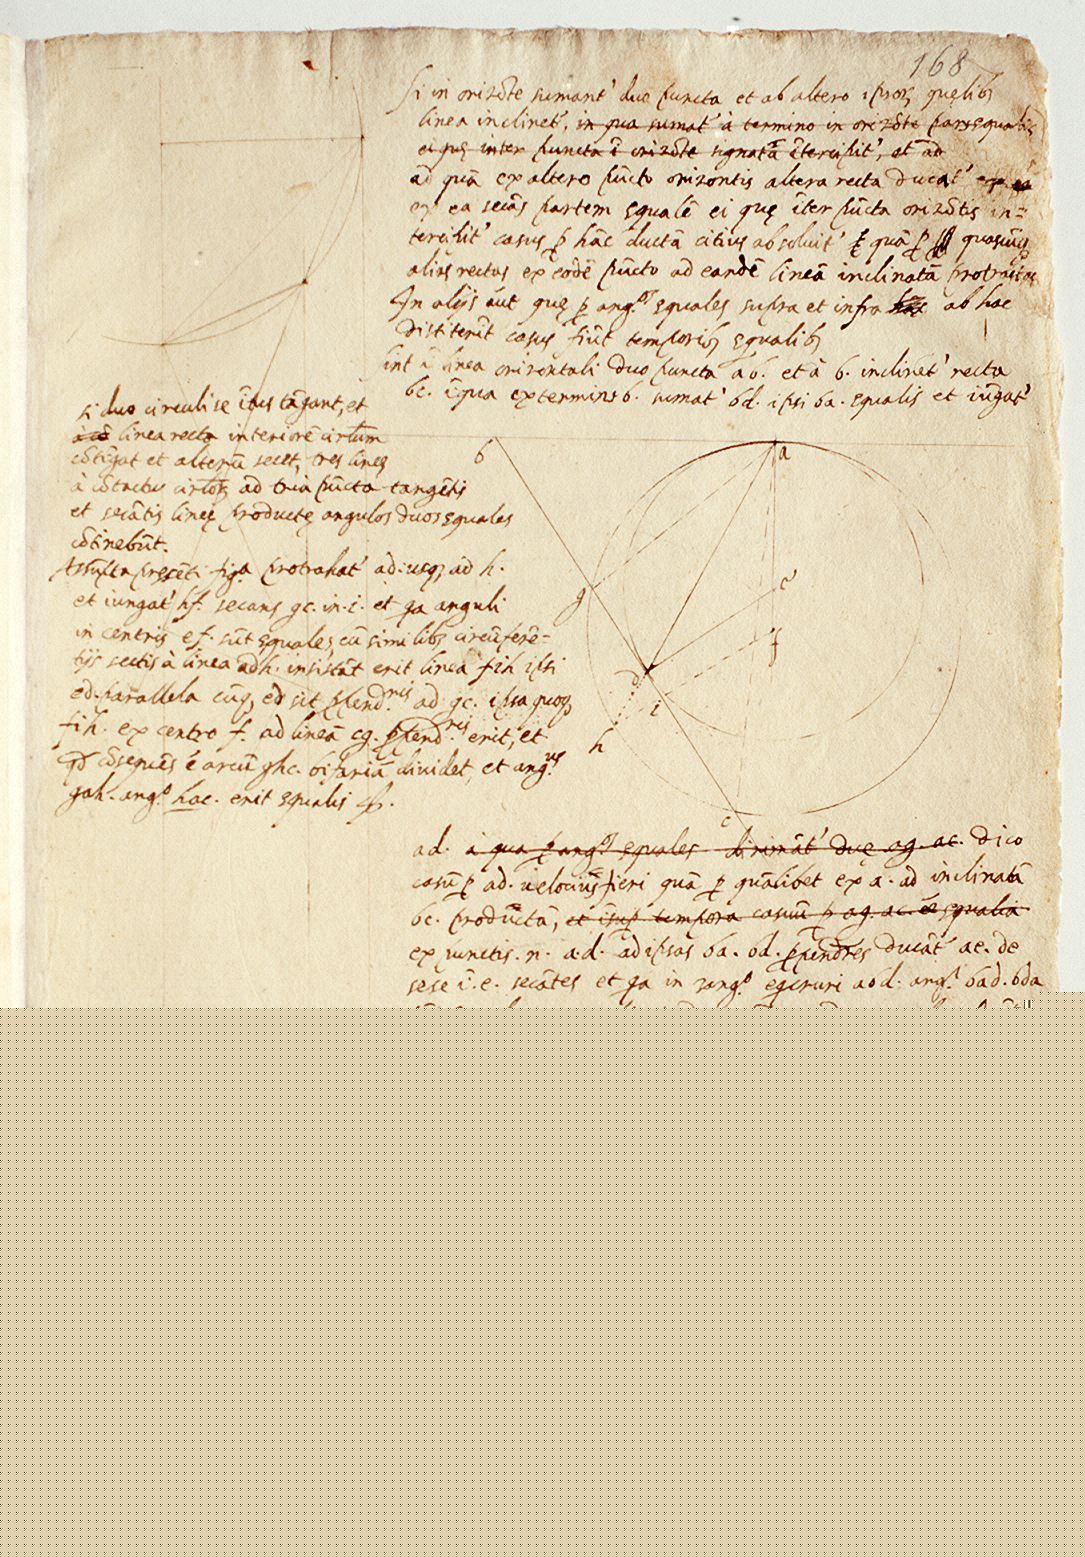 168
Si in orizōte sumant' duo puncta et ab altero ipsorū quęlib;
linea inclinet', in qua sumat' à termino in orizōte pars equalis
ei quę inter puncta ī orizōte signata ītercipit', et ad
ad quā ex altero pūcto orizontis altera recta ducat'
ex ea secās partem equalē ei quę īter pūcta orizōtis in-
tercipit' casus p hāc ductā citius absoluit' quā p quascūq;
alias rectas ex eodē pūcto ad eandē lineā inclinatā protractas
In alijs aut quę p ang.os equales supra et infra ab hac
distiterīt casus fiūt temporib; equalib;
Sint ī linea orizontali duo puncta ab. et à b. inclinet' recta
bc. ī qua ex termino b. sumat' bd. ipsi ba. equalis et iūgat'
si duo circuli se ītus tāgant, et
linea recta interiorē circlum
cōtīgat et alterū secet, tres lineę
à cōtactu circlorū ad tria pūcta tangētis
et secātis lineę productę angulos duos equales
cōtinebūt.
Assūpta presēti fig.a protrahat' ad. usq; ad h.
et iungat' hf. secans gc. in. i. et qa anguli
in centris ef. sūt equales, cū similib; circūferē-
tijs sectis à linea adh. insistāt erit linea fih ipsi
ed. parallela cūq; ed sit ppend.ris ad gc. ipsa quoq;
fih. ex centro f. ad lineā cg. ppend.ris erit, et
qd cōsequēs ē arcū ghc. bifariā dividet, et ang.us
gah. ang.o hac. erit equalis
b
a
g
e
f
d
i
h
c
ad. à qua p ang.os equales dirimāt' duę ag. ac. dico
casū p ad. velocius fieri quā p quālibet ex a. ad inclinatā
bc. productā, et īsup tempora casuū p ag. ac. ēē equalia
ex punctis. n. a.d. ad ipsas ba. bd. ppendres ducāt' ae. de
sese ī. e. secātes et qa in ang.o bad. bda